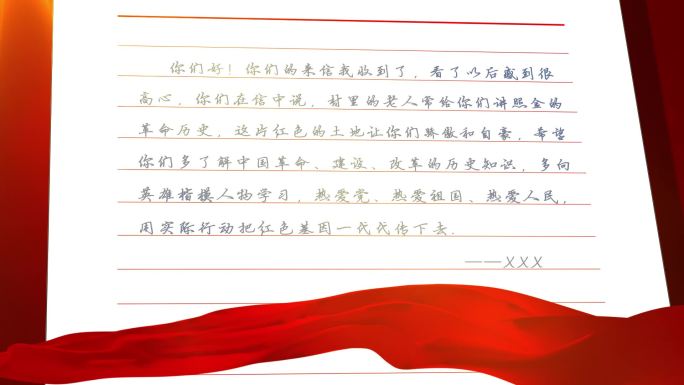 你们好！你们的来信我收到了，看了以后感到很
高心，你们在信中说，村里的老人常给你们讲照金的
革命历史，这片红色的土地让你们骄傲和自豪，希望
你们多了解中国革命、建设、改革的历史知识，多向
英雄楷模人物学习，热爱党、热爱祖国、热爱人民，
用实际行动把红色基因一代代传下去.
——XXX